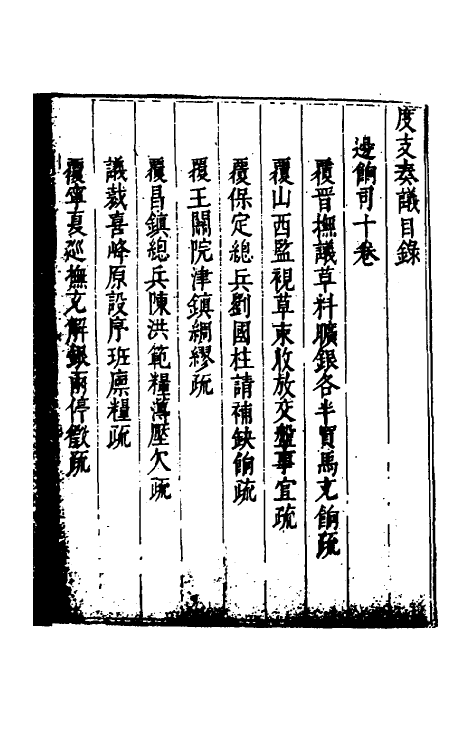 度支奏議目錄
邊餉司十卷
覆晉撫議草料曠銀各半買馬充餉疏
覆山西監視草束收放交盤事宜疏
覆保定總兵劉國柱請補缺餉疏
覆王關院津鎮綢繆疏
覆昌鎮總兵陳洪範糧薄壓欠疏
議裁喜峰原設序班廩糧疏
覆寧夏巡撫文解銀兩停徵疏